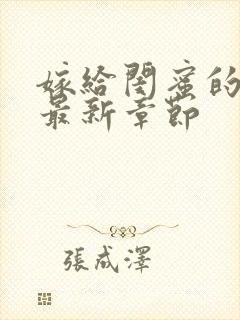 嫁给閨蜜的
最新章節
張成澤